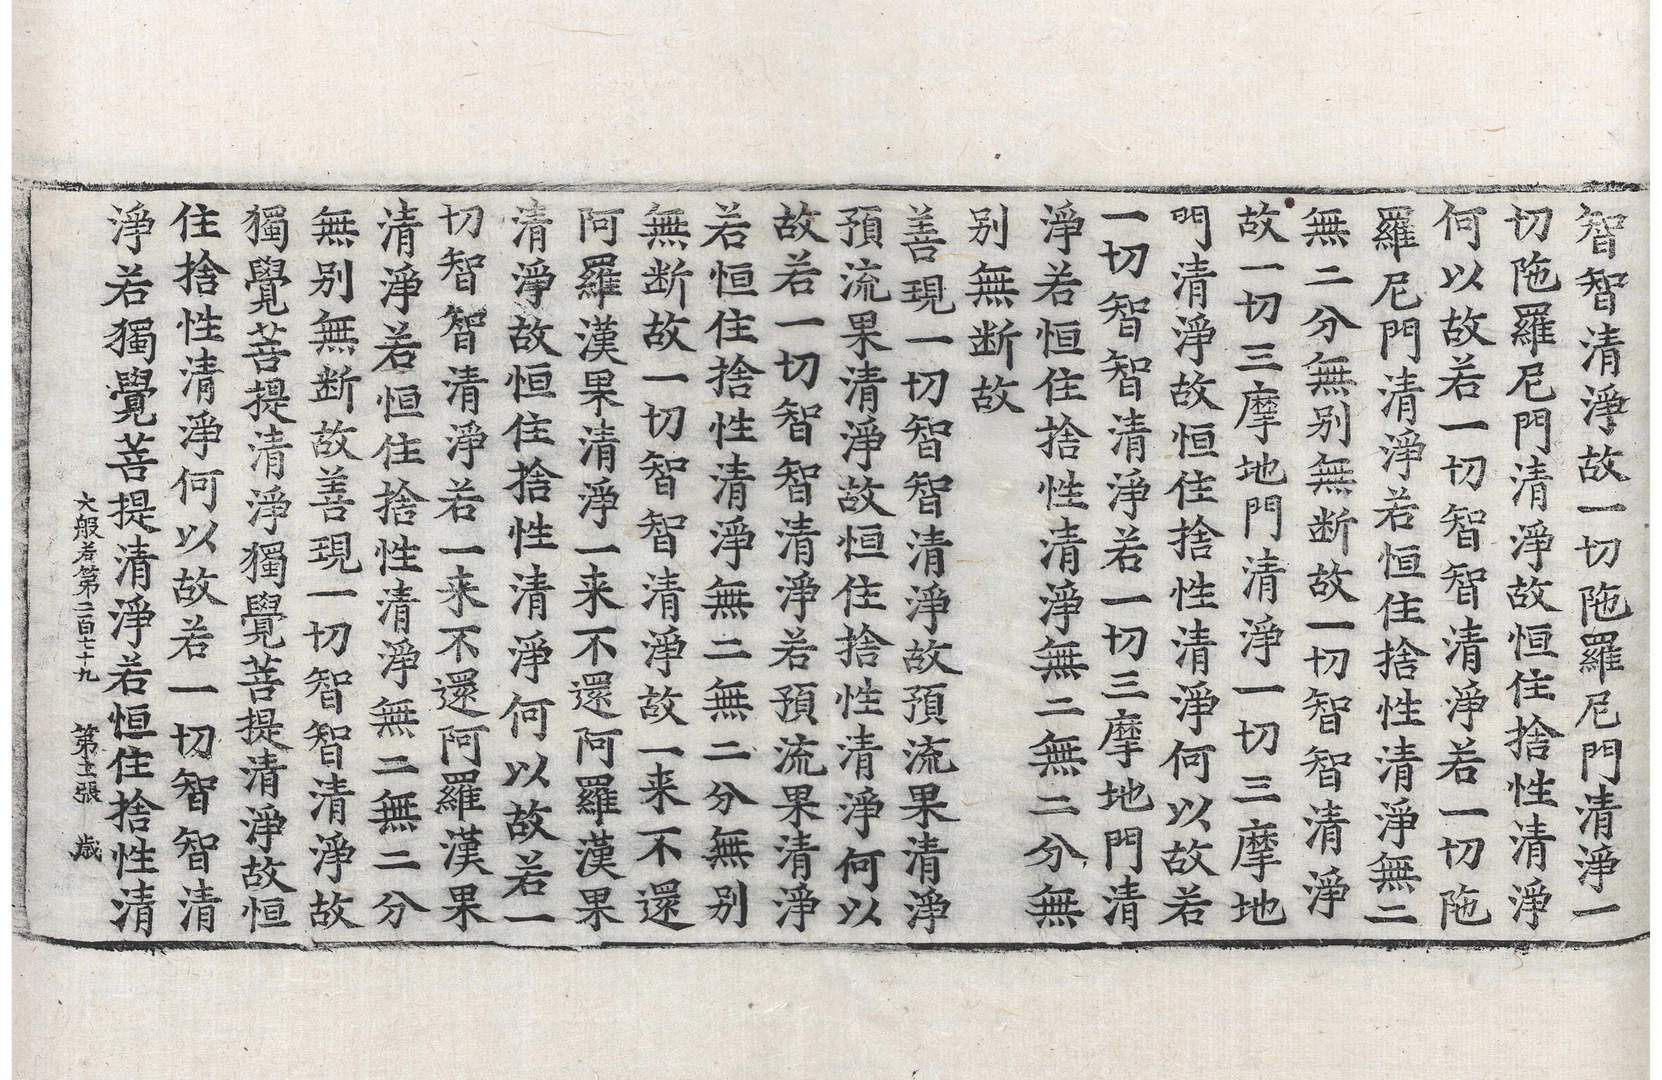 智智清淨故一切陁羅尼門清淨一
切陁羅尼門清淨故恒住捨性清淨
何以故若一切智智清淨若一切陁
羅尼門清淨若恒住捨性清淨無二
無二分無别無断故一切智智清淨
故一切三摩地門清淨一切三摩地
門清淨故恒住捨性清淨何以故若
一切智智清淨若一切三摩地門清
淨若恒住捨性清淨無二無二分無
别無断故
善現一切智智清淨故預流果清淨
預流果清淨故恒住捨性清淨何以
故若一切智智清淨若預流果清淨
若恒住捨性清淨無二無二分無别
無断故一切智智清淨故一来不還
阿羅漢果清淨一来不還阿羅漢果
清淨故恒住捨性清淨何以故若一
切智智清淨若一来不還阿羅漢果
清淨若恒住捨性清淨無二無二分
無别無断故善現一切智智清淨故
獨覺菩提清淨獨覺菩提清淨故恒
住捨性清淨何以故若一切智智清
淨若獨覺菩提清淨若恒住捨性清
大般若第二百七十九 第十一張 歲